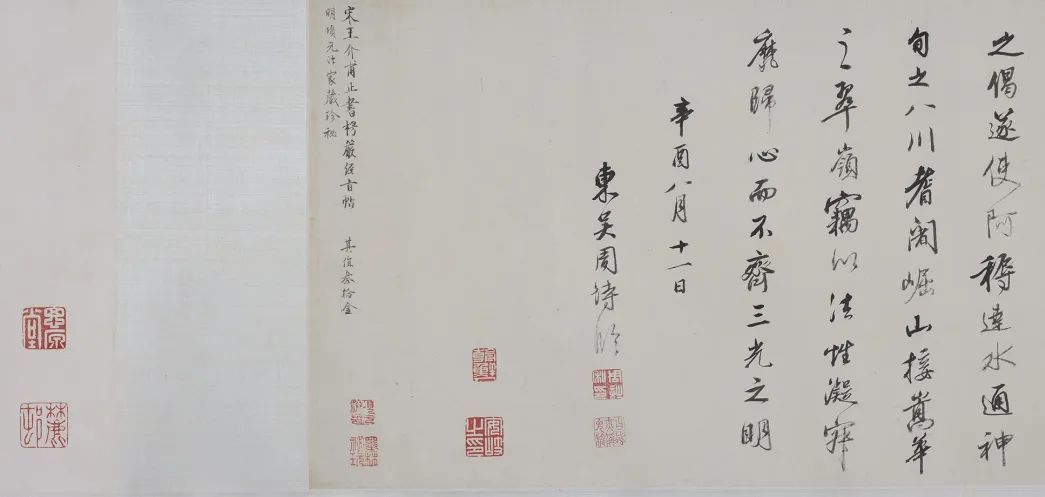 之偈遂使阿耨達水通神
旬之八川耆闍崛山接嵩華
之翠嶺竊以法性凝寂
靡歸心而不齊三光之明
辛酉八月十一日
東吳周詩
宋王介甫正書楞嚴經旨帖 其值叁拾金
明項元汴家藏珍秘
墨林秘玩
安岐之印
思原堂
麓邨